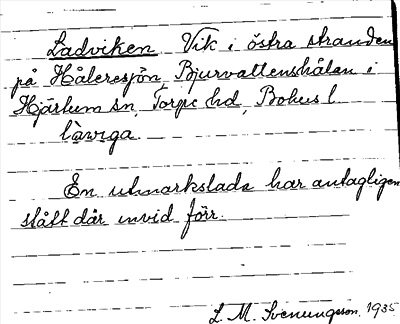 Ladviken Vik i östra stranden
på Håleresjön Bjurvattenshålan i
Hjärtum sn, Torpe hd, Bohus l.
lawiga.
En utmarkslada har antagligen
stått där invid förr.
L. M. Svenungsson. 1935